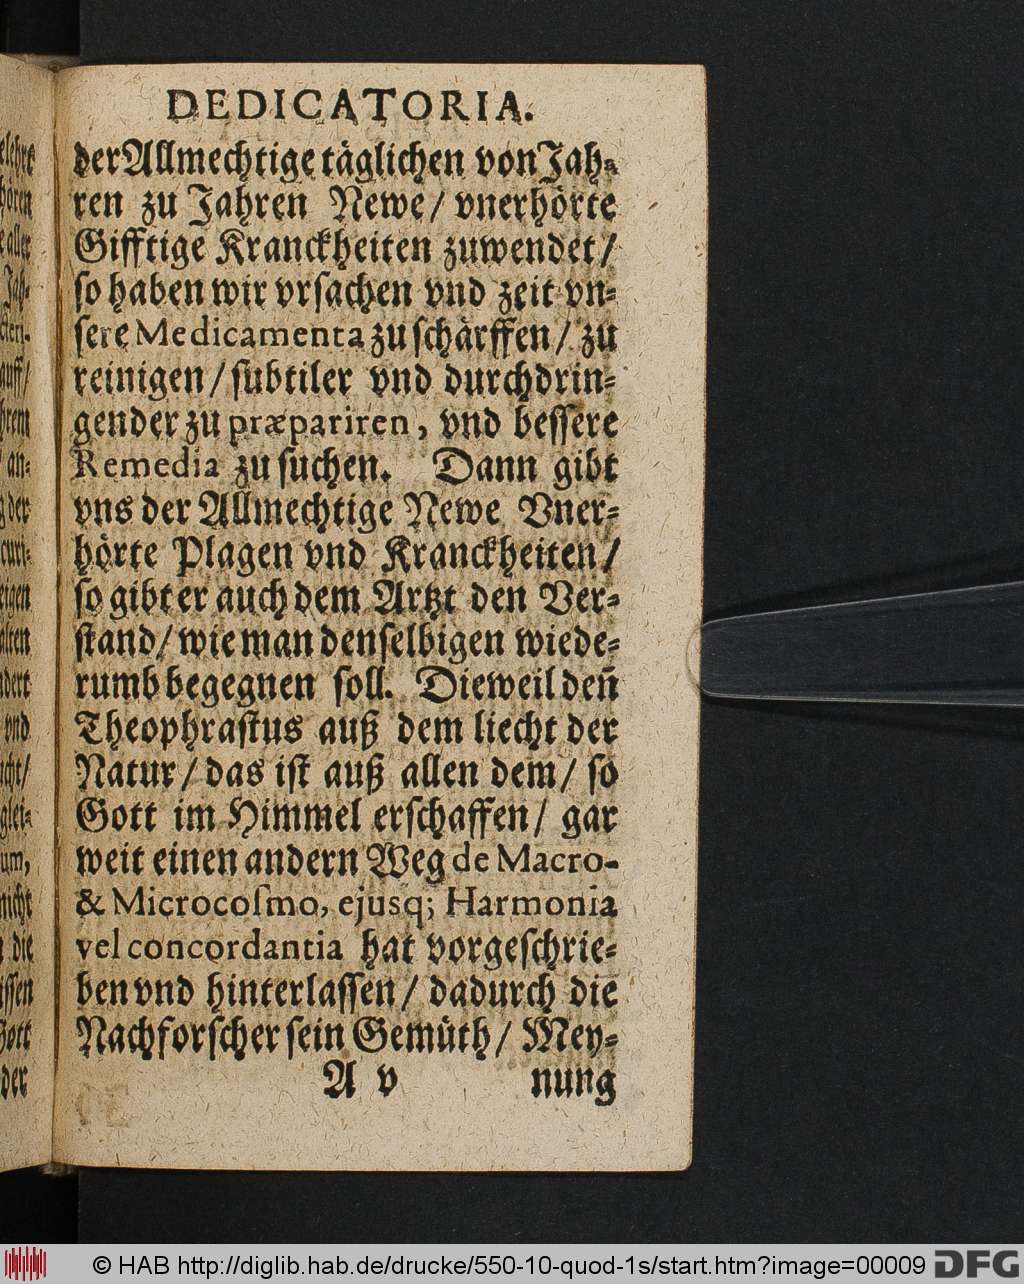 DEDICATORIA.
der Allmechtige täglichen von Jah-
ren zu Jahren Newe/ vnerhörte
Gifftige Kranckheiten zuwendet/
ſo haben wir vrſachen vnd zeit vn-
ſere Medicamenta zu ſchärffen/ zu
reinigen/ ſubtiler vnd durchdrin-
gender zu præpariren, vnd beſſere
Remedia zu ſuchen. Dann gibt
vns der Allmechtige Newe Vner-
hörte Plagen vnd Kranckheiten/
ſo gibt er auch dem Artzt den Ver-
ſtand/ wie man denſelbigen wiede-
rumb begegnen ſoll. Dieweil deñ
Theophraſtus auß dem liecht der
Natur/ das iſt auß allen dem/ ſo
Gott im Himmel erſchaffen/ gar
weit einen andern Weg de Macro-
& Microcoſmo, ejusq; Harmonia
vel concordantia hat vorgeſchrie-
ben vnd hinterlaſſen/ dadurch die
Nachforſcher ſein Gemüth/ Mey-
A v nung
© HAB http://diglib.hab.de/drucke/550-10-quod-1s/start.htm?image=00009 DFG